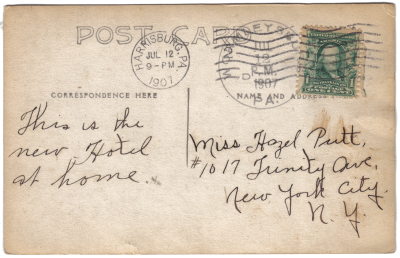 POST CARD
HARRISBURG, PA.
JUL 12
9-PM
1907
JUL
12
P.M.
1907
PA.
CORRESPONDENCE HERE
NAME AND ADDRESS
This is the
new Hotel
at home.
Miss Hazel Putt,
#1017 Trinity Ave,
New York City.
N.Y.